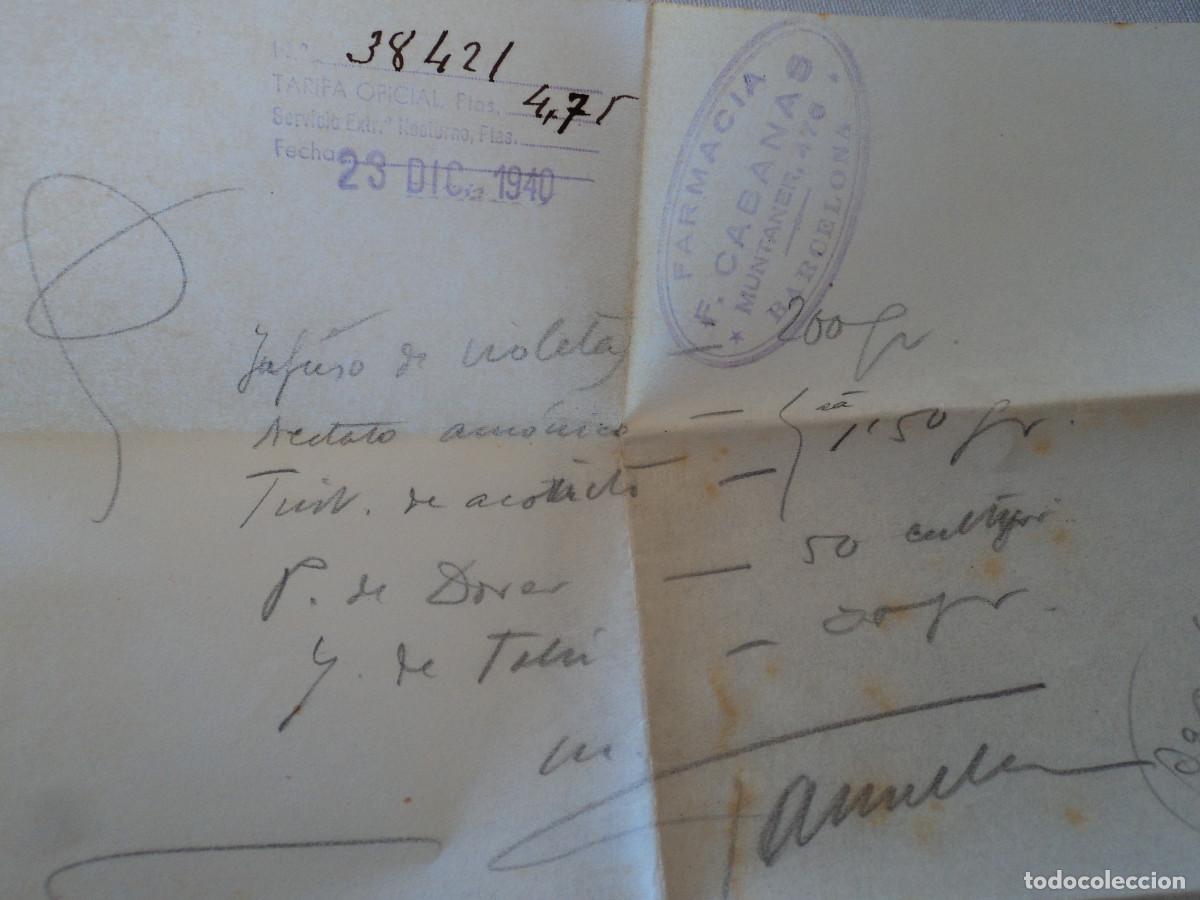 Nº 38421
TARIFA OFICIAL, Ptas. 4,75
Servicio Extr.º Nocturno, Ptas.
Fecha 23 DIC. 1940
FARMACIA
F. CABANAS
★ MUNTANER, 470 ★
BARCELONA
Infuso de violetas — 200 gr.
Acetato amónico — } aa 1'50 gr.
Tint. de acónito —
P. de Dover — 50 centigr
J. de Tolú — 20 gr.
m.
todocoleccion